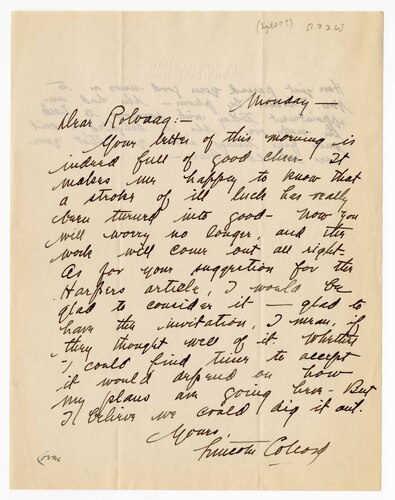 [1926]
Monday —
Dear Rolvaag:-
Your letter of this morning is
indeed full of good cheer - It
makes me happy to know that
a stroke of ill luck has really
been turned into good - now you
will worry no longer, and the
work will come out all right -
As for your suggestion for the
Harpers article, I would be
glad to consider it — glad to
have the invitation, I mean, if
they thought well of it. Whether
I could find time to accept
it would depend on how
my plans are going here - But
I believe we could dig it out.
Yours,
Lincoln Colcord